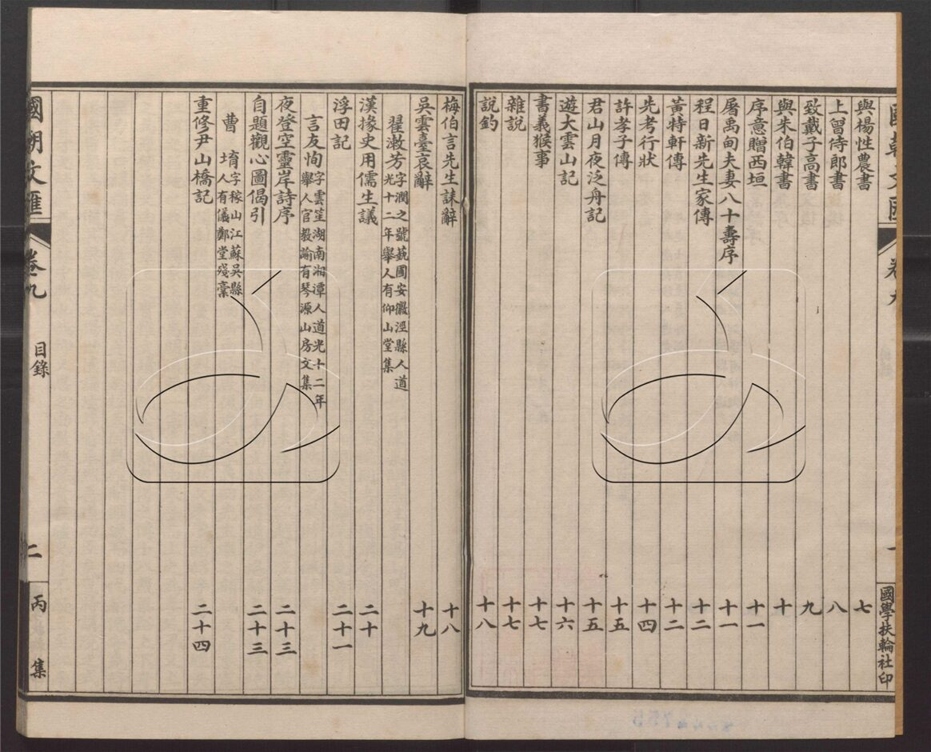 與楊性農書 七
上曾侍郎書 八
致戴子高書 九
與朱伯韓書 十
序意贈西垣 十一
屠禹甸夫妻八十壽序 十一
程日新先生家傳 十二
黃特軒傳 十二
先考行狀 十四
許孝子傳 十五
君山月夜泛舟記 十五
遊大雲山記 十六
書義猴事 十七
雜說 十七
說釣 十八
國學扶輪社印
梅伯言先生誄辭 十八
吳雲臺哀辭 十九
翟漱芳 字潤之號藐園安徽涇縣人道光十二年舉人有仰山堂集
漢掾史用儒生議 二十
浮田記 二十一
言友恂 字雲笙湖南湘潭人道光十二年舉人官教諭有琴源山房文集
夜登空靈岸詩序 二十三
自題觀心圖偈引 二十三
曹堉 字稼山江蘇吳縣人有儀鄭堂殘稾
重修尹山橋記 二十四
國朝文匯 卷九 目錄 二 丙集